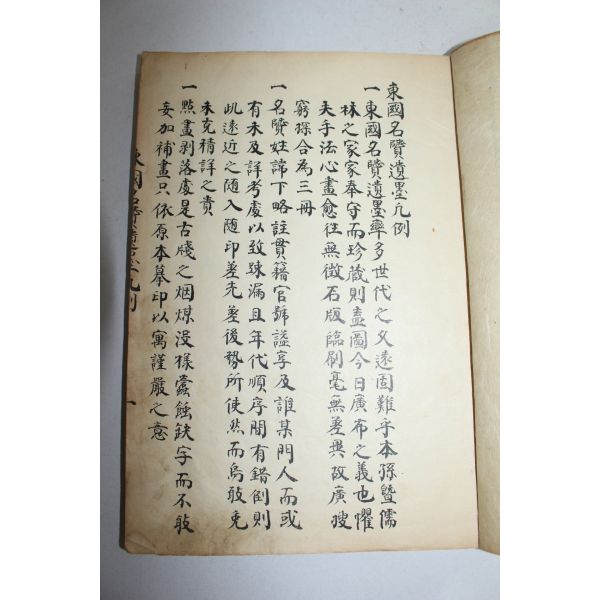 東國名賢遺墨凡例
一東國名賢遺墨率多世代之久遠固難乎本孫曁儒
林之家家奉守而珍藏則盍圖今日廣布之義也懼
夫手法心畫愈往無徵石版臨刷毫無差異故廣搜
窮探合為三冊
一名賢姓諱下略註貫籍官號謚享及誰某門人而或
有未及詳考處以致疎漏且年代順序間有錯倒則
此遠近之隨入隨印差先差後勢所使然而烏敢免
未克精詳之責
一點畫剥落處是古牋之烟煤没樣蠹蝕缺字而不敢
妄加補畫只依原本摹印以寓謹嚴之意
東國名賢遺墨凡例
一